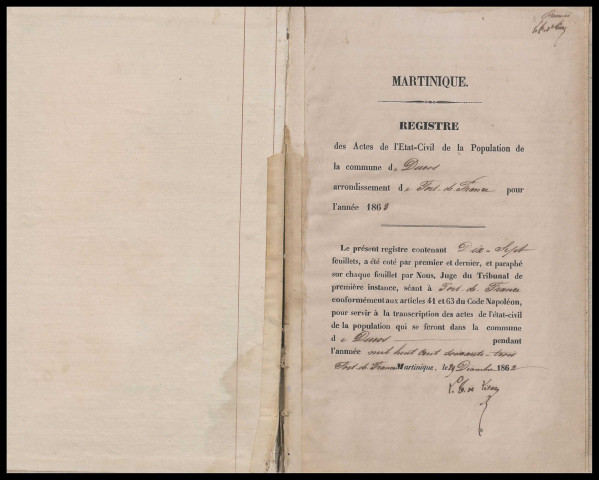 MARTINIQUE.
REGISTRE
des Actes de l'Etat-Civil de la Population de
la commune de Ducos
arrondissement de Fort-de-France pour
l'année 1863
Le présent registre contenant Dix-Sept
feuillets, a été coté par premier et dernier, et paraphé
sur chaque feuillet par Nous, Juge du Tribunal de
première instance, séant à Fort-de-France
conformément aux articles 41 et 63 du Code Napoléon,
pour servir à la transcription des actes de l'état-civil
de la population qui se feront dans la commune
de Ducos pendant
l'annnée mil huit cent soixante-trois
Fort-de-France Martinique, le Décembre 1862